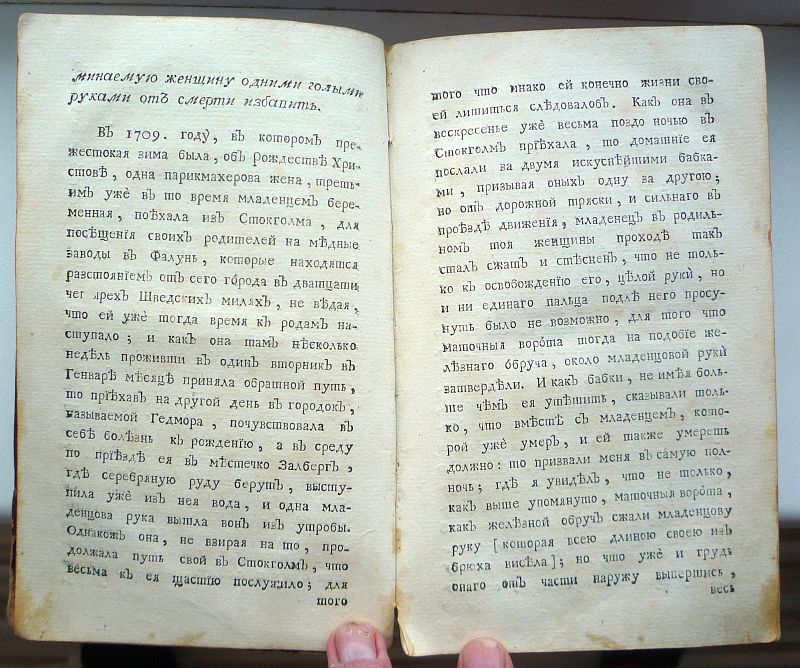 минаемую женщину одними голыми
руками отъ смерти избавить.
Въ 1709. году, въ которомъ пре-
жестокая зима была, объ рождествѣ Хри-
стовѣ, одна парикмахерова жена, треть-
имъ уже́ въ то время младенцемъ бере-
менная, поѣхала изъ Стокголма, для
посѣщенія своихъ родителей на мѣдные
заводы въ Фалунь, которые находятся
разстояніемъ отъ сего го́рода въ дватцати
четырехъ Шведскихъ миляхъ, не вѣдая,
что ей уже́ тогда время къ родамъ на-
ступало; и какъ она тамъ нѣсколько
недѣль проживши въ одинъ вторникъ въ
Генварѣ мѣсяцѣ приняла обратной путь,
то пріѣхавъ на другой день въ городокъ,
называемой Гедмора, почувствовала въ
себѣ болѣзнь къ рожденію, а въ среду
по пріѣздѣ ея въ мѣстечко Залбергъ,
гдѣ серебряную руду берутъ, высту-
пила уже́ изъ нея вода, и одна мла-
денцова рука вышла вонъ изъ утробы.
Однакожъ она, не взирая на то, про-
должала путь свой въ Стокголмъ, что
весьма къ ея щастію послужило; для
того
того что инако ей конечно жизни сво-
ей лишиться слѣдовалобъ. Какъ она въ
воскресенье уже́ весьма поздо ночью въ
Стокголмъ пріѣхала, то домашніе ея
послали за двумя искуснѣйшими бабка-
ми, призывая оныхъ одну за другою;
но отъ дорожной тряски, и сильнаго въ
проѣздѣ движенія, младенецъ въ родиль-
номъ тоя женщины проходѣ такъ
сталъ сжатъ и стѣсненъ, что не толь-
ко къ освобожденію его, цѣлой руки́, но
и ни единаго пальца подлѣ него просу-
нуть было не возможно, для того что
маточныя воро́та тогда на подобіе же-
лѣзнаго о́бруча, около младенцовой руки́
затвердѣли. И какъ бабки, не имѣя боль-
ше чѣмъ ея утѣшить, сказывали толь-
ко, что вмѣстѣ съ младенцемъ, кото-
рой уже́ умеръ, и ей также умереть
должно: то призвали меня въ са́мую пол-
ночь; гдѣ я увидѣлъ, что не только,
какъ выше упомянуто, маточныя воро́та,
какъ желѣзной обручъ сжали младенцову
руку [которая всею длиною своею изъ
брюха висѣла]; но что уже́ и грудь
онаго отъ части наружу выпершись,
весь